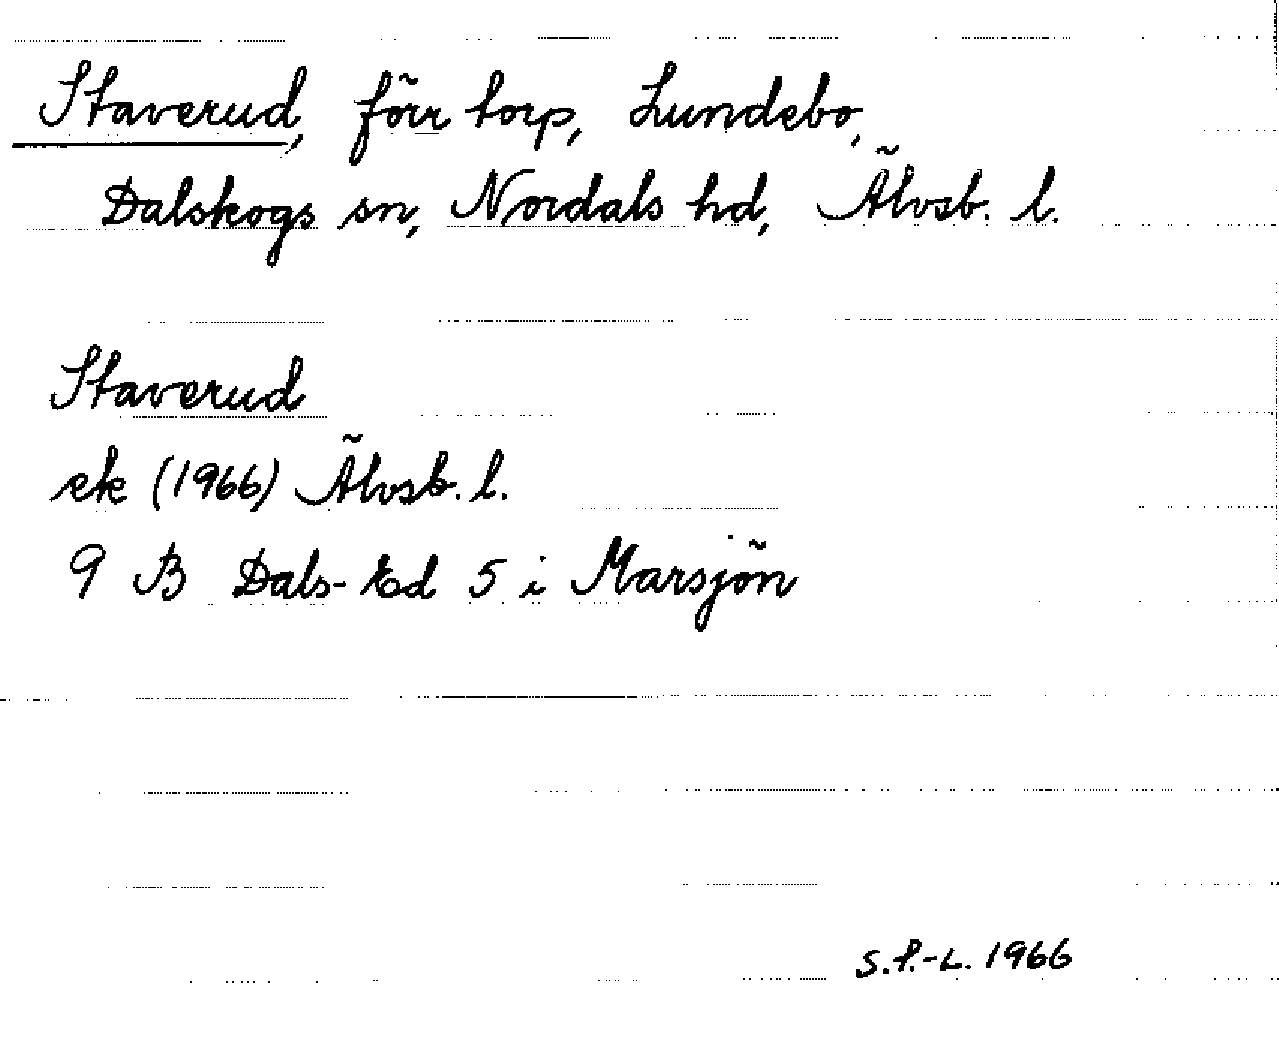 Staverud, förr torp, Lundebo,
Dalskogs sn, Nordals hd, Älvsb. l.
Staverud
ek (1966) Älvsb. l.
9 B Dals-Ed 5 i Marsjön
S.P.-L. 1966